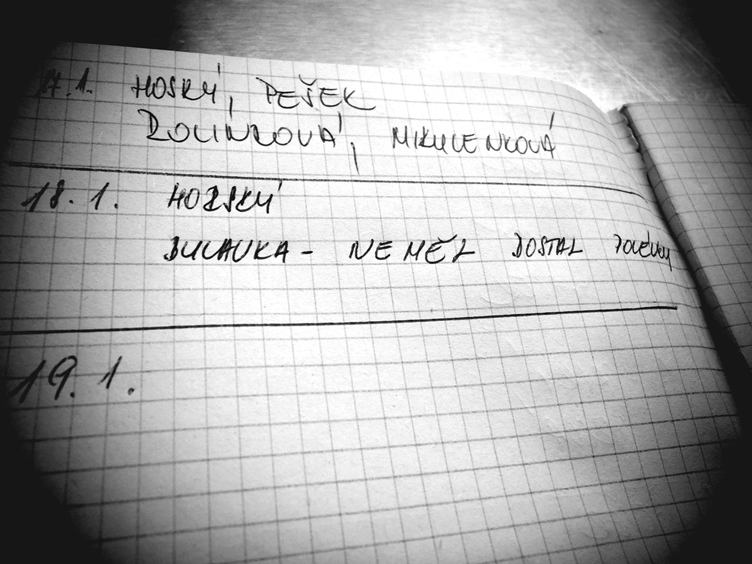 17.1. HORSKÝ, PEŠEK
ROLÍNKOVÁ, MIKULENKOVÁ
18.1. HORSKÝ
BULAVKA - NEMĚL DOSTAL POLÉVKY
19.1.